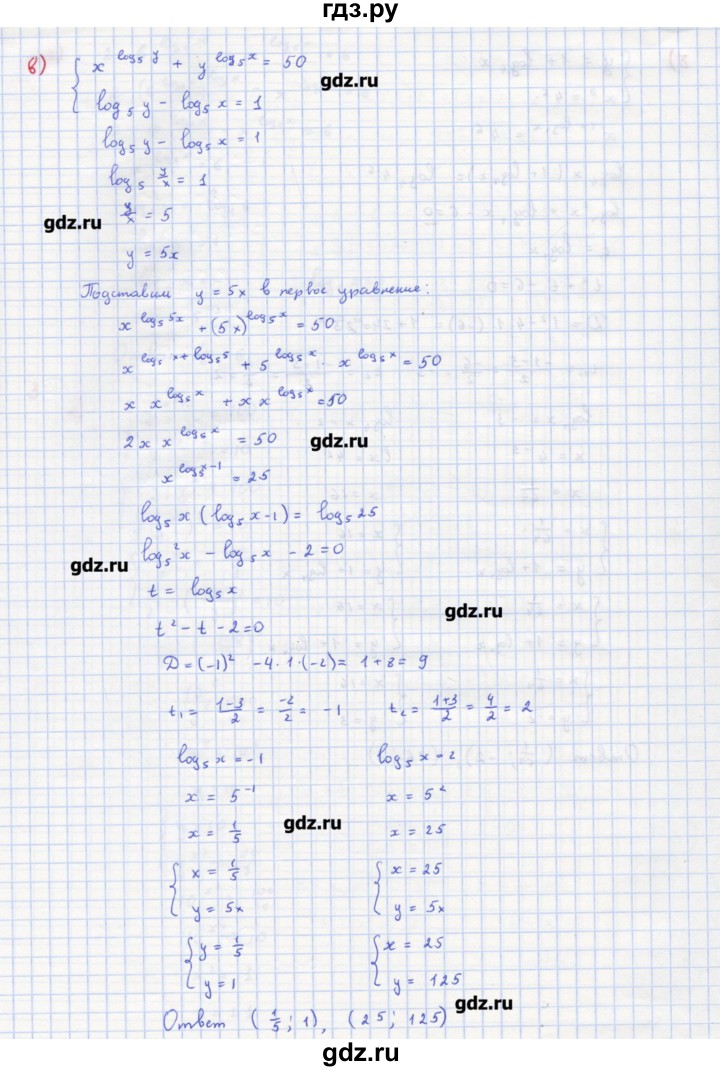 гдз.ру
в) { x^{log_5 y} + y^{log_5 x} = 50
gdz.ru
log_5 y - log_5 x = 1
log_5 y - log_5 x = 1
log_5 y/x = 1
gdz.ru
y/x = 5
y = 5x
Подставим y = 5x в первое уравнение:
x^{log_5 5x} + (5x)^{log_5 x} = 50
x^{log_5 x + log_5 5} + 5^{log_5 x} · x^{log_5 x} = 50
x x^{log_5 x} + x x^{log_5 x} = 50
2x x^{log_5 x} = 50 gdz.ru
x^{log_5 x-1} = 25
log_5 x (log_5 x-1) = log_5 25
log_5^2 x - log_5 x - 2 = 0
gdz.ru
t = log_5 x
gdz.ru
t^2 - t - 2 = 0
D = (-1)^2 - 4·1·(-2) = 1 + 8 = 9
t_1 = (1-3)/2 = -2/2 = -1 t_2 = (1+3)/2 = 4/2 = 2
log_5 x = -1 log_5 x = 2
x = 5^{-1} x = 5^2
gdz.ru
x = 1/5 x = 25
{ x = 1/5 { x = 25
y = 5x y = 5x
{ y = 1/5 { x = 25
y = 1 y = 125
gdz.ru
Ответ (1/5; 1), (25; 125)
gdz.ru